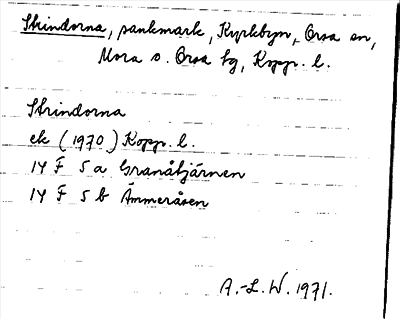 Strindorna, sankmark, Kyrkbyn, Orsa sn,
Mora o. Orsa tg, Kopp. l.
Strindorna
ek (1970) Kopp. l.
14 F 5 a Granåtjärnen
14 F 5 b Ämmeråsen
A.-L. W. 1971.